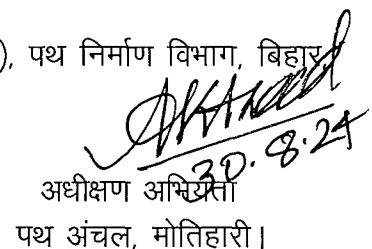 ), पथ निर्माण विभाग, बिहार
30.8.24
अधीक्षण अभियंता
पथ अंचल, मोतिहारी।